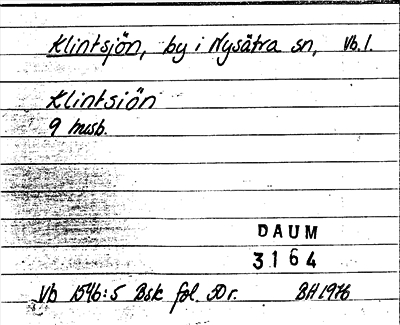 Klintsjön, by i Nysätra sn, Vb. l.
Klintsiön
9 husb.
DAUM
3164
Vb 1546:5 Bsk fol. 50 r. BH 1976